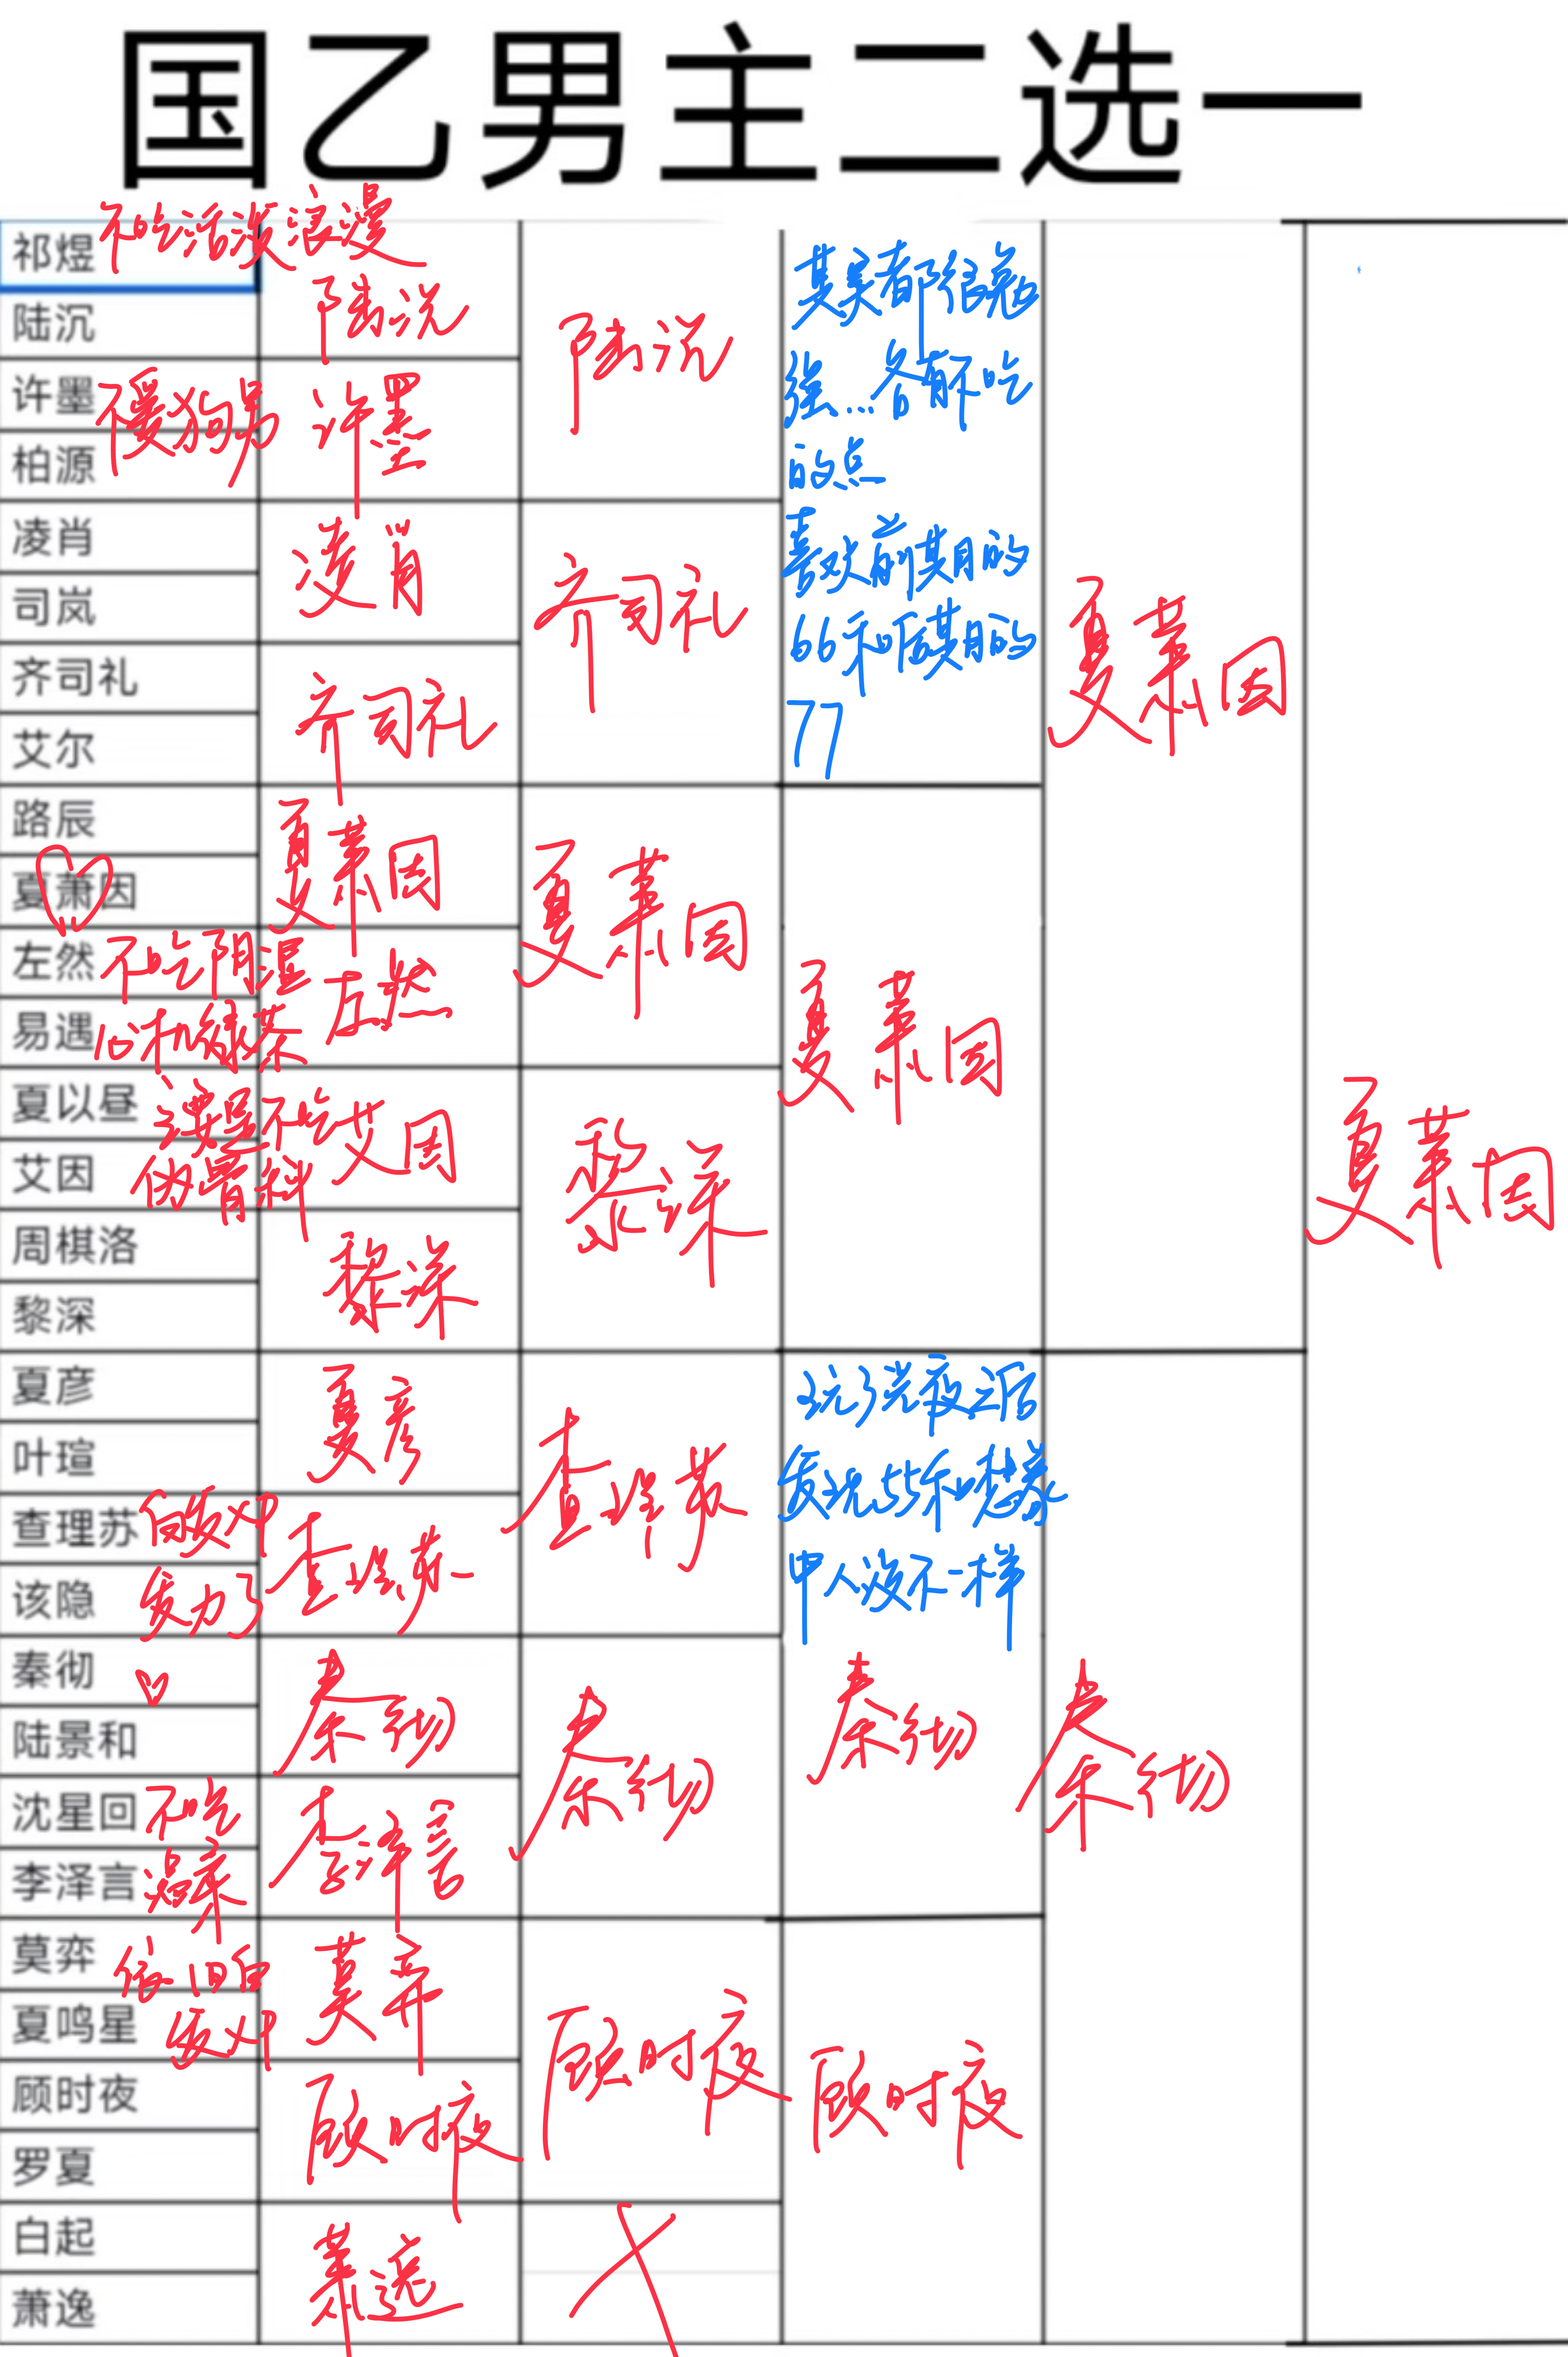 国乙男主二选一
祁煜
不吃活泼浪漫
陆沉
陆沉
陆沉
许墨
暖狗男
许墨
柏源
其实都很勉
强…各有不吃
的点
喜欢前期的
66和后期的
77
凌肖
凌肖
司岚
齐司礼
齐司礼
齐司礼
艾尔
夏萧因
路辰
夏萧因
夏萧因
夏萧因
左然
不吃阴湿
左然
易遇
心机绿茶
夏萧因
夏以昼
不吃
艾因
艾因
周棋洛
黎深
黎深
黎深
夏萧因
夏彦
夏彦
叶瑄
查理苏
玩了光夜之后
发现55和想象
中人设不一样
查理苏
查理苏
该隐
发力了
秦彻
秦彻
秦彻
秦彻
秦彻
陆景和
沈星回
不吃
李泽言
温柔
李泽言
莫弈
莫弈
夏鸣星
顾时夜
顾时夜
顾时夜
顾时夜
罗夏
白起
萧逸
萧逸